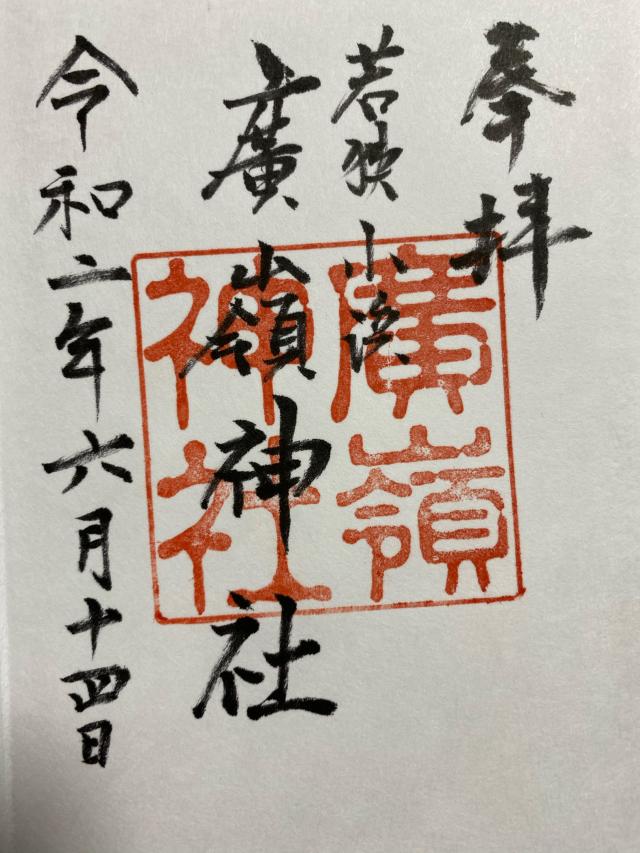 奉拝
若狭小浜
廣嶺神社
令和二年六月十四日
廣嶺
神社